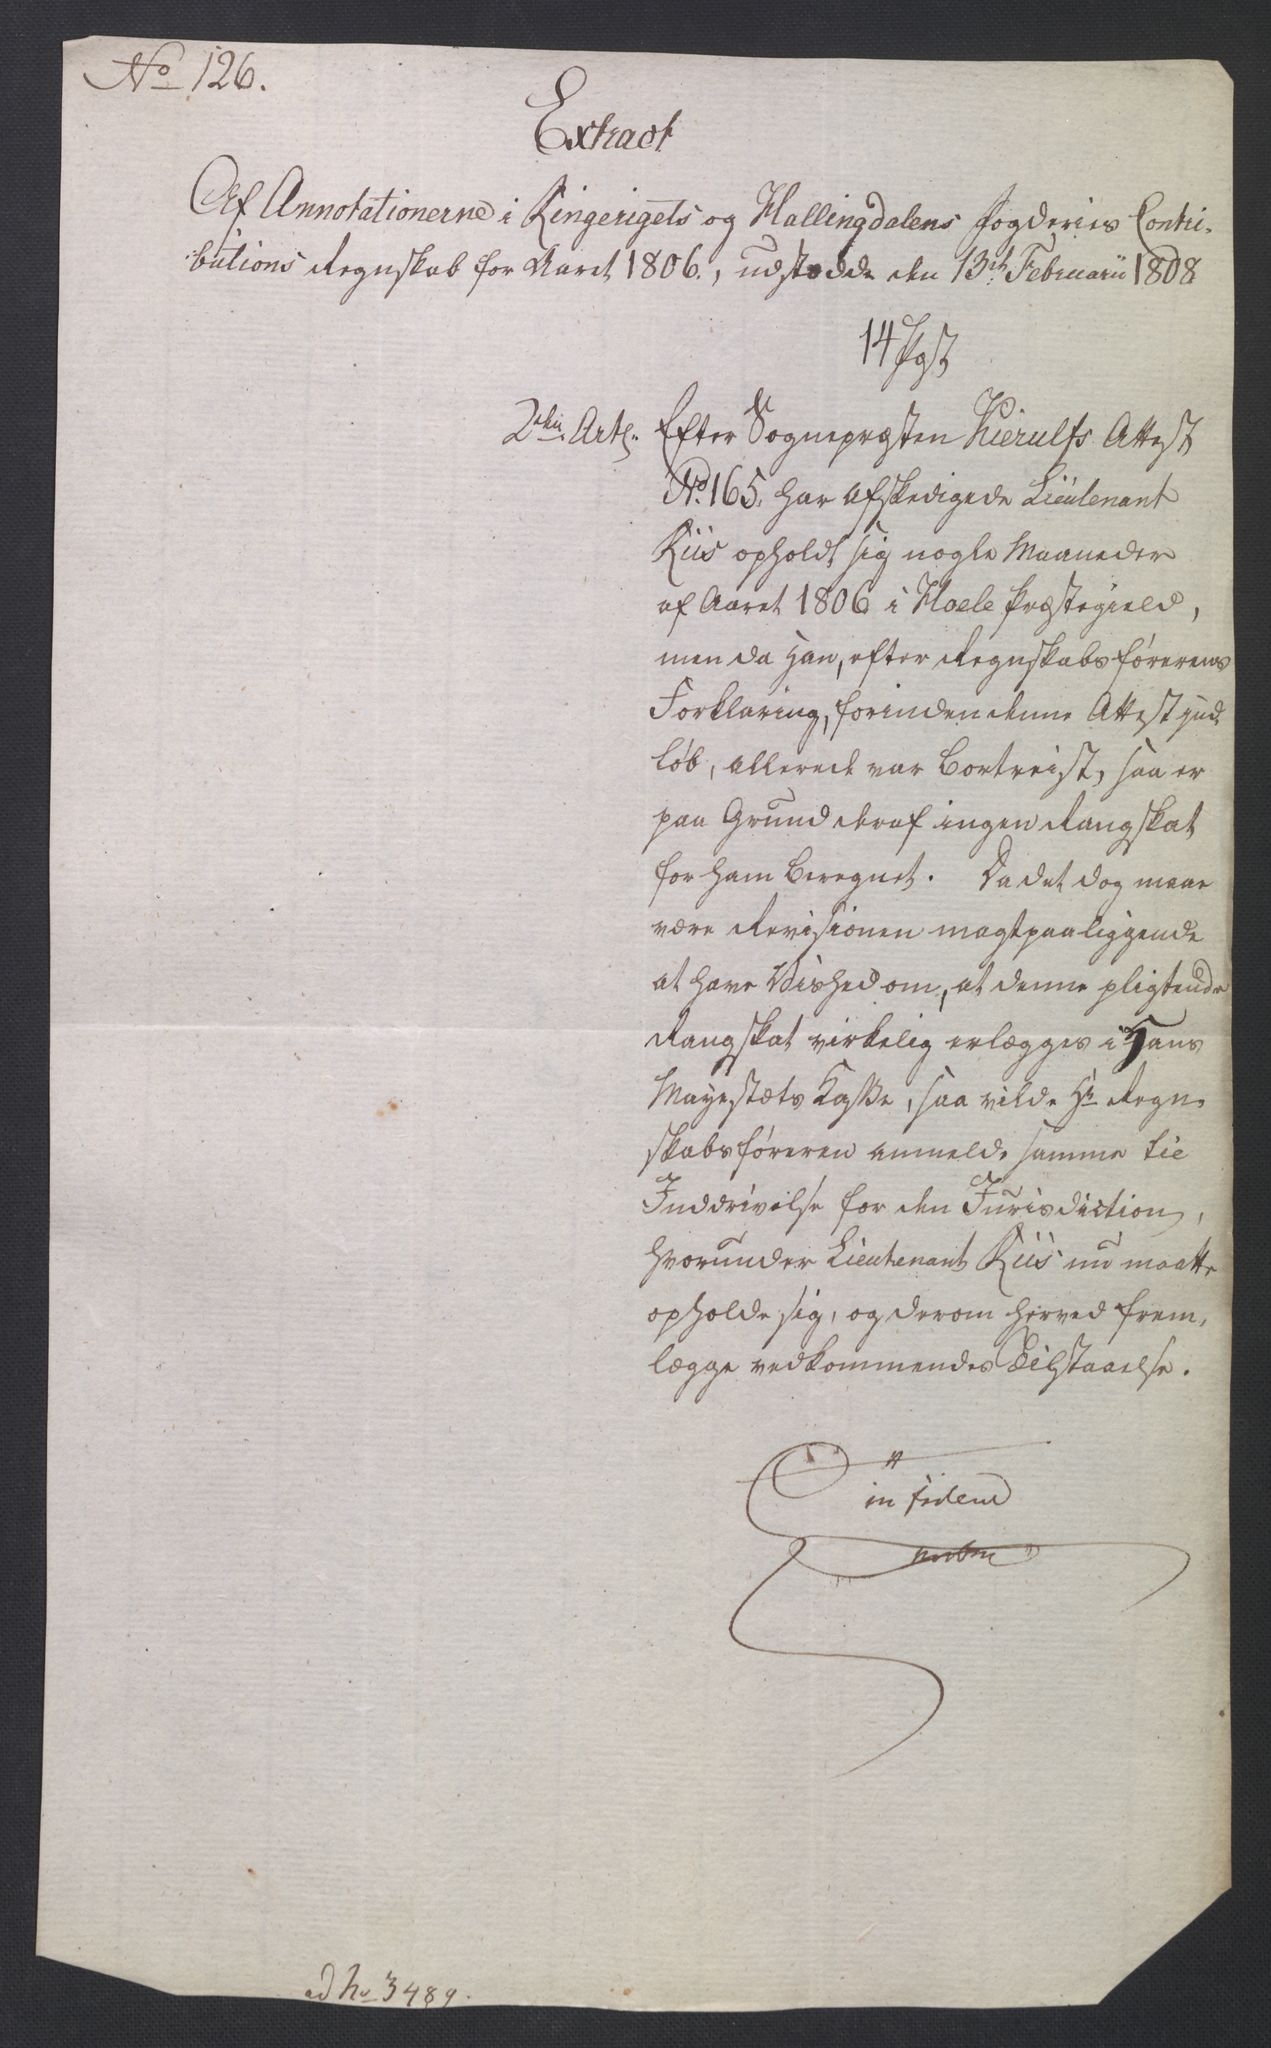 No 126.
Extract
Af Annotationerne i Ringerigets og Hallingdalens Fogderies Contri-
butions Regnskab for Aaret 1806., udstædde den 13de Februarii 1808
14 Pgst
2den Artl. Efter Sognepræsten Kierulfs Attest
No. 165. har afskedigede Lieutenant
Riis opholdt sig nogle Maaneder
af Aaret 1806 i Hoele Præstegield,
men da Han, efter Regnskabsførerens
Forklaring, forinden denne Attest ind-
løb, allerede var bortreist, saa er
paa Grund deraf ingen Rangskat
for ham beregnet. Da det dog maae
være Revisionen magtpaaliggende
at have Vished om, at denne pligtende
Rangskat virkelig erlægges i Hans
Mayestæts Kasse, saa vilde Hr Regn-
skabsføreren anmelde samme til
Inddrivelse for den Jurisdiction,
hvorunder Lieutenant Riis nu maatte
opholde sig, og derom herved frem-
lægge vedkommendes Tilstaaelse.
in fidem
ad No 3489.